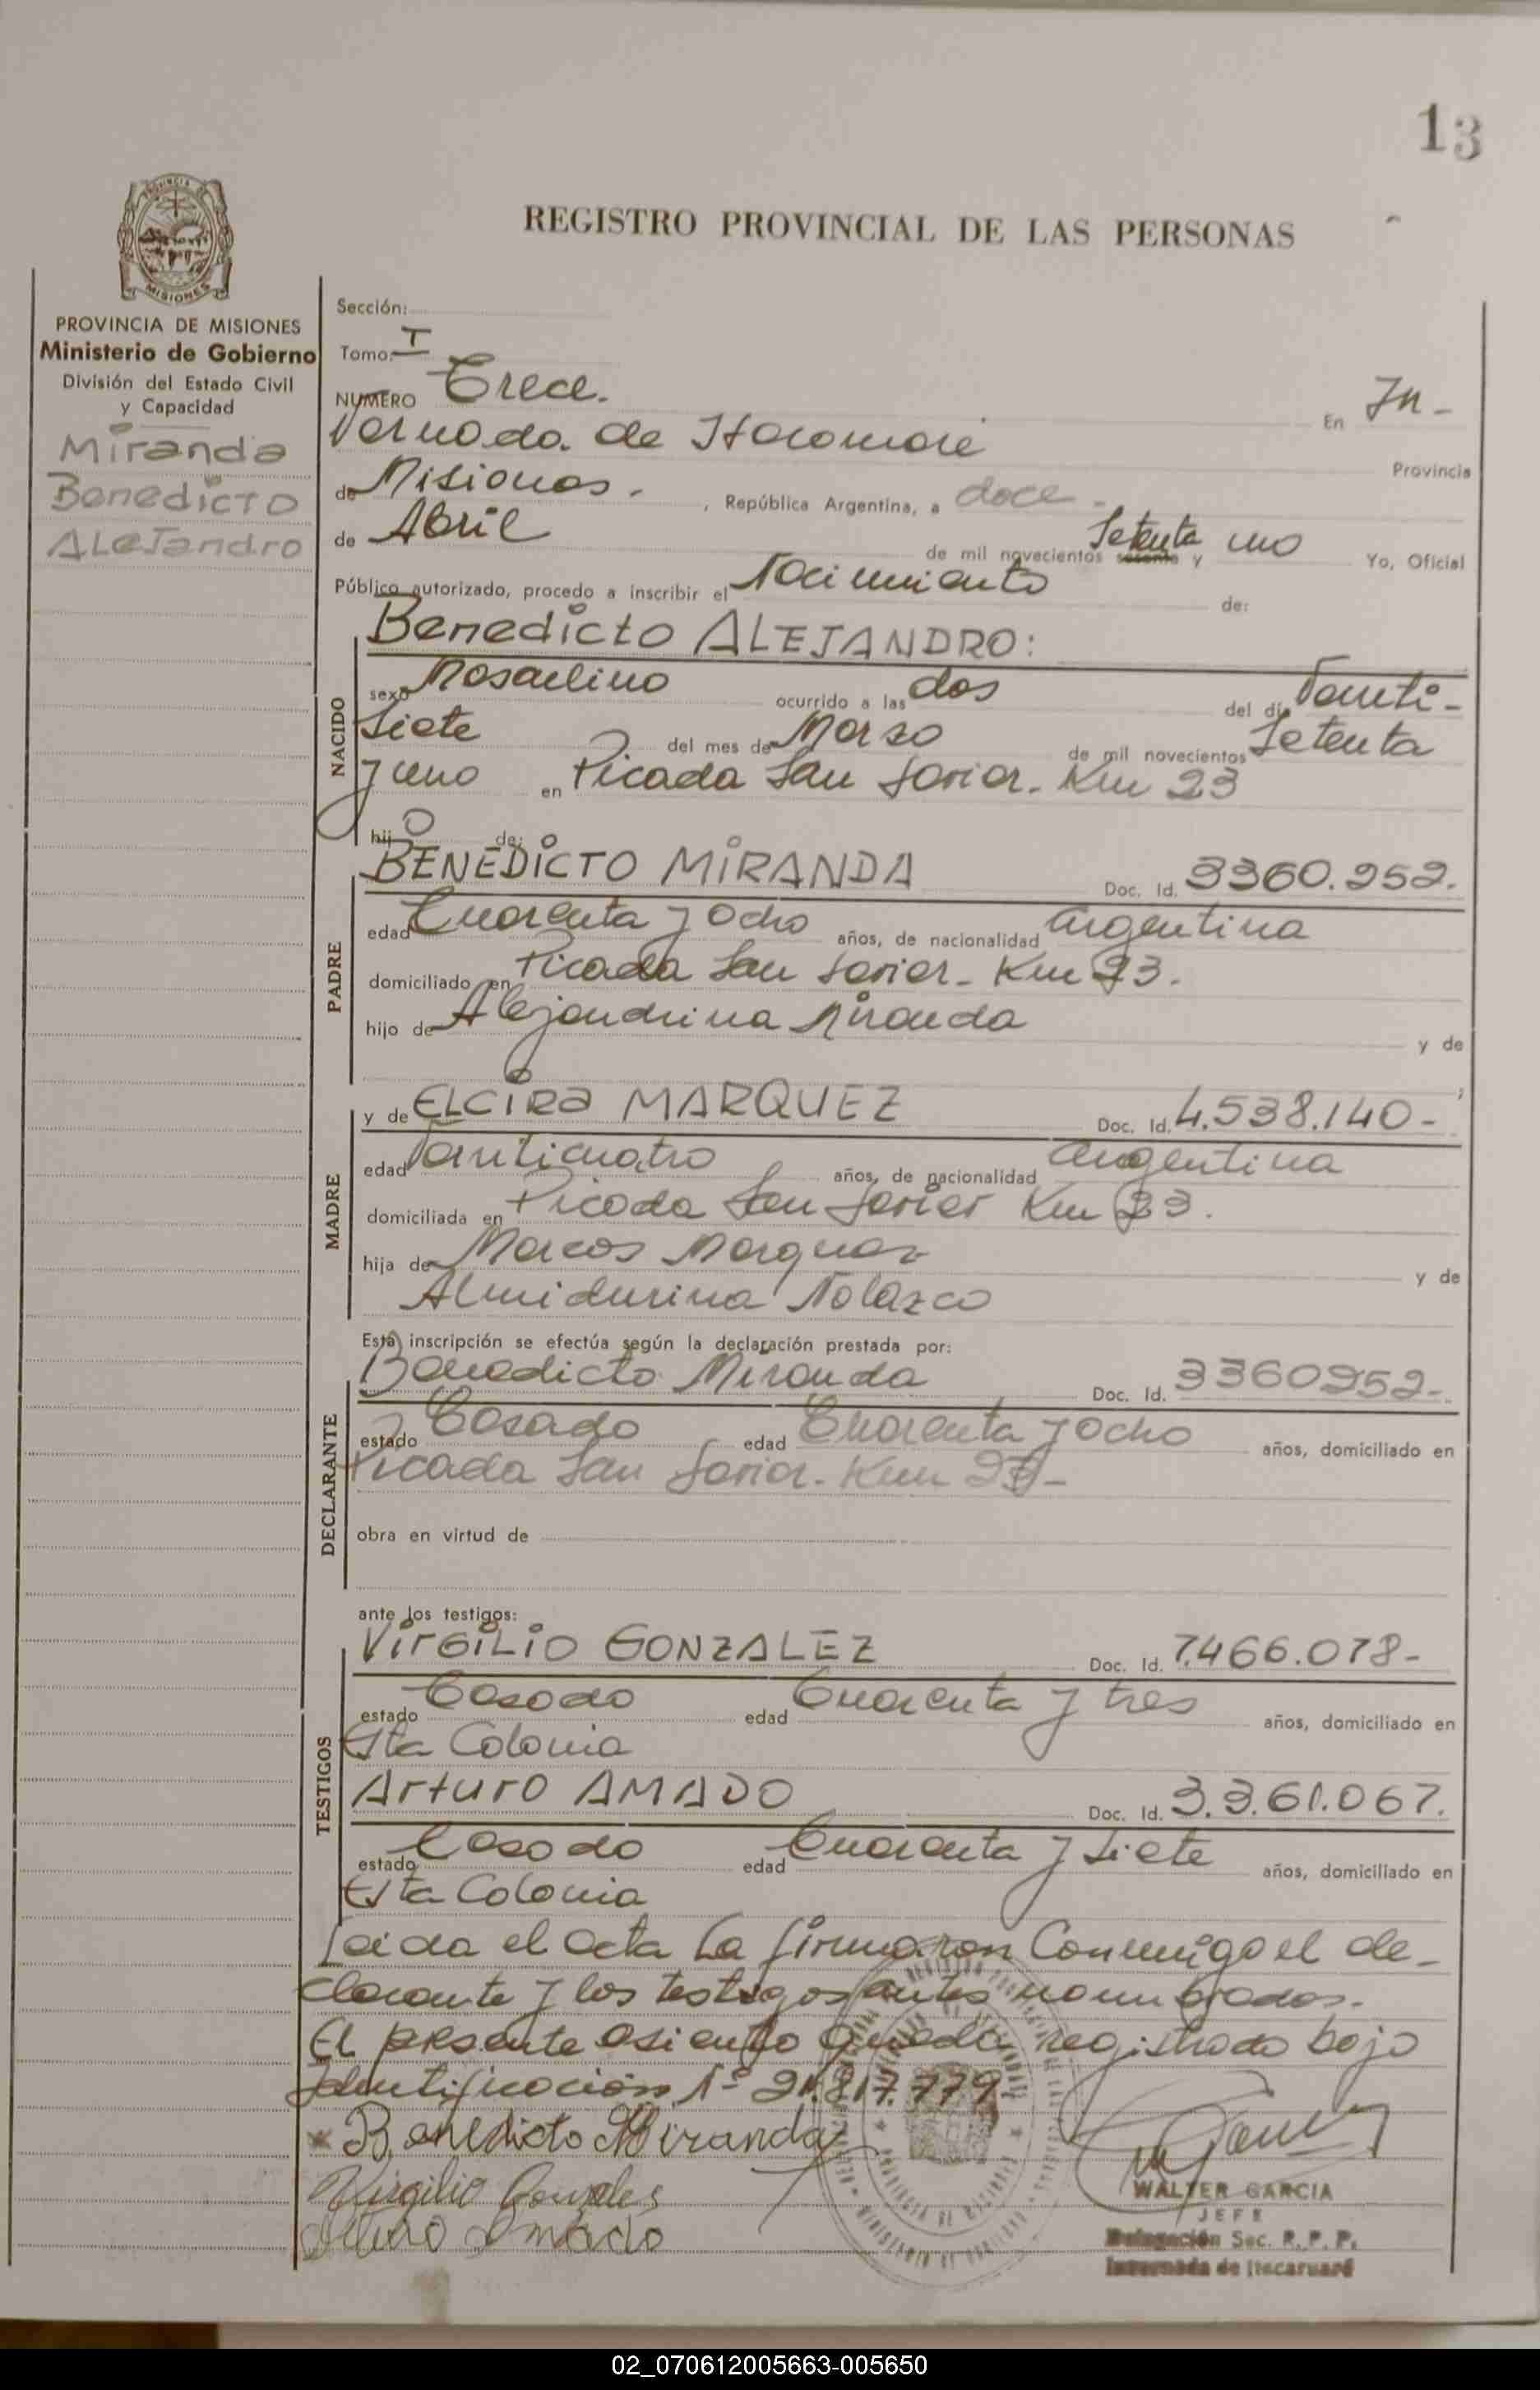 13
REGISTRO PROVINCIAL DE LAS PERSONAS
MISIONES
PROVINCIA DE MISIONES
Ministerio de Gobierno
División del Estado Civil
y Capacidad
Miranda
Benedicto
ALeJandro
Sección:
Tomo: I
NUMERO Trece. En In-
ternada de Itacaruaré Provincia
de Misiones. , República Argentina, a doce
de Abril de mil novecientos setenta y Setenta uno Yo, Oficial
Público autorizado, procedo a inscribir el Nacimiento de:
Benedicto ALEJANDRO:
NACIDO
sexo Masculino ocurrido a las dos del día Veinti-
siete del mes de Marzo de mil novecientos Setenta
y uno en Picada San Javier. Km 23
hij o de:
PADRE
BENEDICTO MIRANDA Doc. Id. 3360.952.
edad Cuarenta y Ocho años, de nacionalidad argentina
domiciliado en Picada San Javier - Km 23.
hijo de Alejandrina Miranda y de
MADRE
y de ELCIRA MARQUEZ Doc. Id. 4.538.140-
edad Veinticuatro años, de nacionalidad argentina
domiciliada en Picada San Javier Km 23.
hija de Marcos Marquez y de
Nolazco
Esta inscripción se efectúa según la declaración prestada por:
DECLARANTE
Benedicto Miranda Doc. Id. 3360952-
estado Casado edad Cuarenta y Ocho años, domiciliado en
Picada San Javier - Km 23-
obra en virtud de
ante los testigos:
TESTIGOS
VirGiLiO GONZALEZ Doc. Id. 7.466.078-
estado Casado edad Cuarenta y tres años, domiciliado en
Esta Colonia
Arturo AMADO Doc. Id. 3.361.067.
estado Casado edad Cuarenta y siete años, domiciliado en
Esta Colonia
Leida el acta la firmaron Conmigo el de-
clarante y los testigos antes nombrados.
El presente asiento queda registrado bajo
Identificación Nº 21.817.779
Benedicto Miranda
Virgilio Gonzales
Arturo Amado
WALTER GARCIA
JEFE
Delegación Sec. R. P. P.
Internada de Itacaruaré
02_070612005663-005650